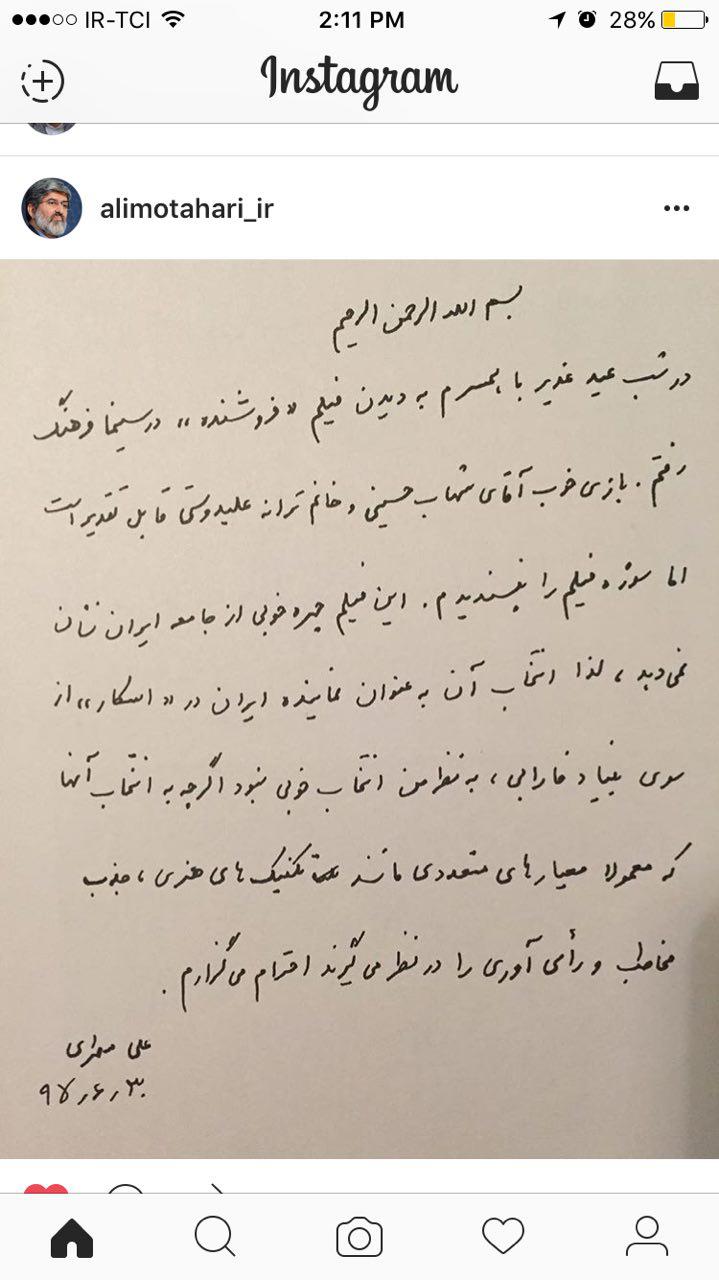 IR-TCI 2:11 PM 28%
Instagram
alimotahari_ir
بسم الله الرحمن الرحیم
در شب عید غدیر با همسرم به دیدن فیلم «فروشنده» در سینما فرهنگ
رفتم. بازی خوب آقای شهاب حسینی و خانم ترانه علیدوستی قابل تقدیر است
اما سوژه فیلم را نپسندیدم. این فیلم چهره خوبی از جامعه ایران نشان
نمی‌دهد، لذا انتخاب آن به عنوان نماینده ایران در «اسکار» از
سوی بنیاد فارابی، به نظر من انتخاب خوبی نبود اگرچه به انتخاب آنها
که معمولا معیارهای متعددی مانند تکنیک‌های هنری، جذب
مخاطب و رأی آوری را در نظر می‌گیرند احترام می‌گزارم.
علی مطهری